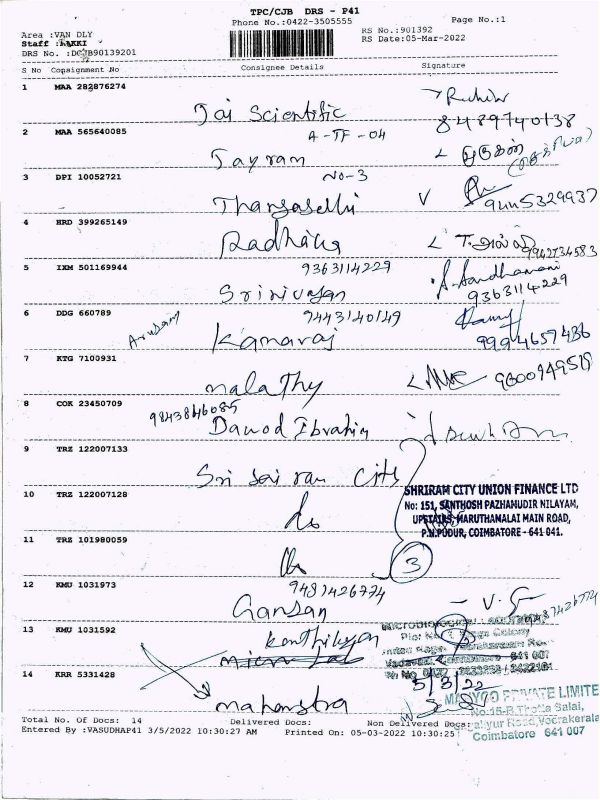 TPC/CJB DRS - P41
Phone No.:0422-3505555
Page No.:1
Area :VAN DLY
RS No.:901392
Staff :LAKKI
RS Date:05-Mar-2022
DRS No. :DCJB90139201
S No Consignment No Consignee Details Signature
1 MAA 282876274
Jai Scientific
8489740138
2 MAA 565640085
A-TF-04
Jayram
முருகன்
3 DPI 10052721
No-3
Thangaselvi
9445329937
4 HRD 399265149
Radhika
9942734583
5 IXM 501169944
9363114229
Srinivasan
9363114229
6 DDG 660789
9443140149
Kamaraj
9994657486
7 KTG 7100931
malathy
9600949519
8 COK 23450709
9843846085
Dawod Ibrahim
9 TRZ 122007133
Sri Sai ram City
10 TRZ 122007128
do
SHRIRAM CITY UNION FINANCE LTD
No: 151, SANTHOSH PAZHAMUDIR NILAYAM,
UPSTAIRS, MARUTHAMALAI MAIN ROAD,
P.N.PUDUR, COIMBATORE - 641 041.
11 TRZ 101980059
do
3
12 KMU 1031973
9487426774
Gansan
9487426774
13 KMU 1031592
Micro Lab
14 KRR 5331428
5/3/22
mahenstra
PRIVATE LIMITE
No:15-R,Thotta Salai,
Road, Veerakerala
Coimbatore 641 007
Total No. Of Docs: 14 Delivered Docs: Non Delivered Docs:
Entered By :VASUDHAP41 3/5/2022 10:30:27 AM Printed On: 05-03-2022 10:30:25